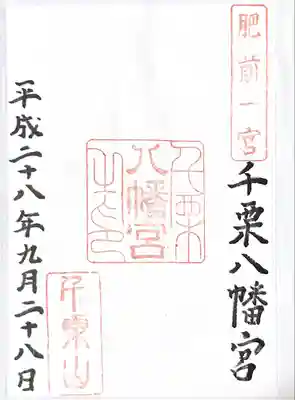 肥前一宮
千栗八幡宮
千栗
八幡宮
之印
千栗山
平成二十八年九月二十八日